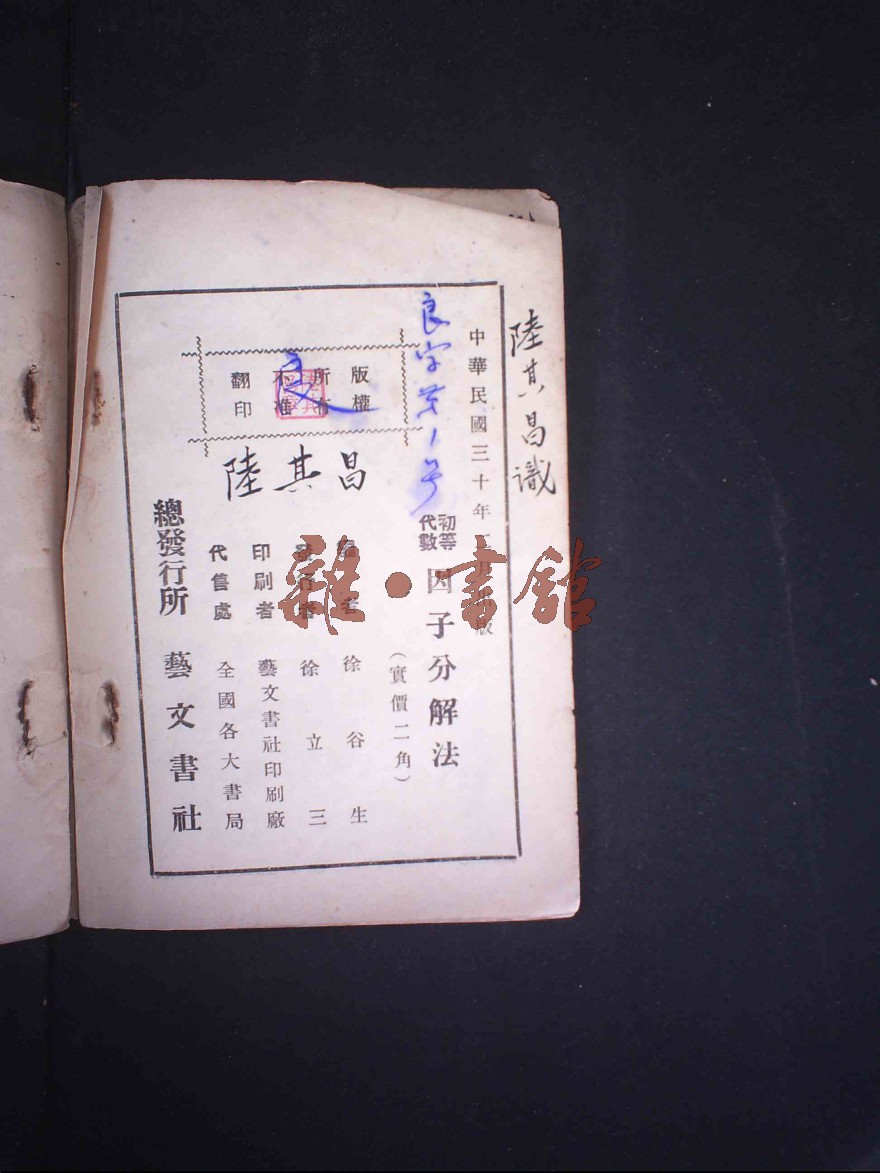 陸其昌識
中華民國三十年二月出版
良字第1号
初等
代數
因子分解法
(實價二角)
版權
所有
不准
翻印
良
陸其昌
編者 徐谷生
發行者 徐立三
印刷者 藝文書社印刷廠
代售處 全國各大書局
總發行所 藝文書社
雜·書館